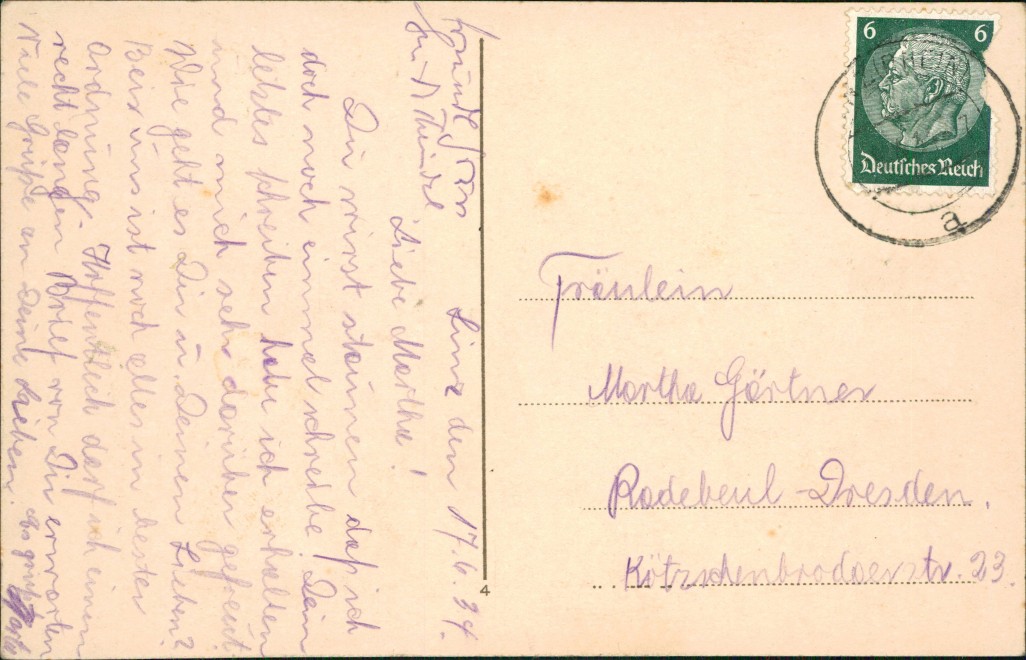 Linz den 17.6.34.
Liebe Martha!
Du wirst staunen daß ich
doch noch einmal schreibe! Dein
letztes schreiben habe ich erhalten
und mich sehr darüber gefreut.
Wie geht es Dir u. Deinen Lieben?
Bei uns ist noch alles in bester
Ordnung, Hoffentlich darf ich einen
recht langen Brief von Dir erwarten
Viele Grüße an Deine Lieben. Es grüßt
6 6
Deutsches Reich
a
Fräulein
Martha Gärtner
Radebeul-Dresden.
Kötzschenbrodaerstr. 23.
4